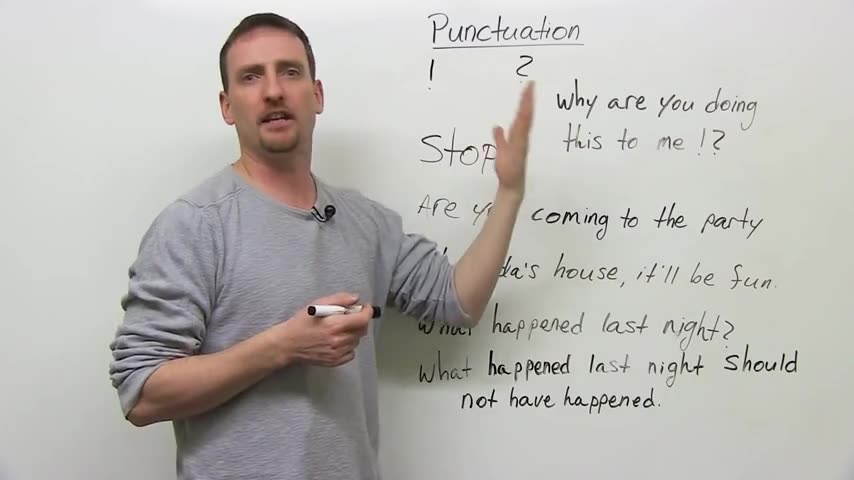 Punctuation
! ?
Why are you doing
this to me !?
Stop
Are coming to the party
house, it'll be fun.
What happened last night?
What happened last night should
not have happened.